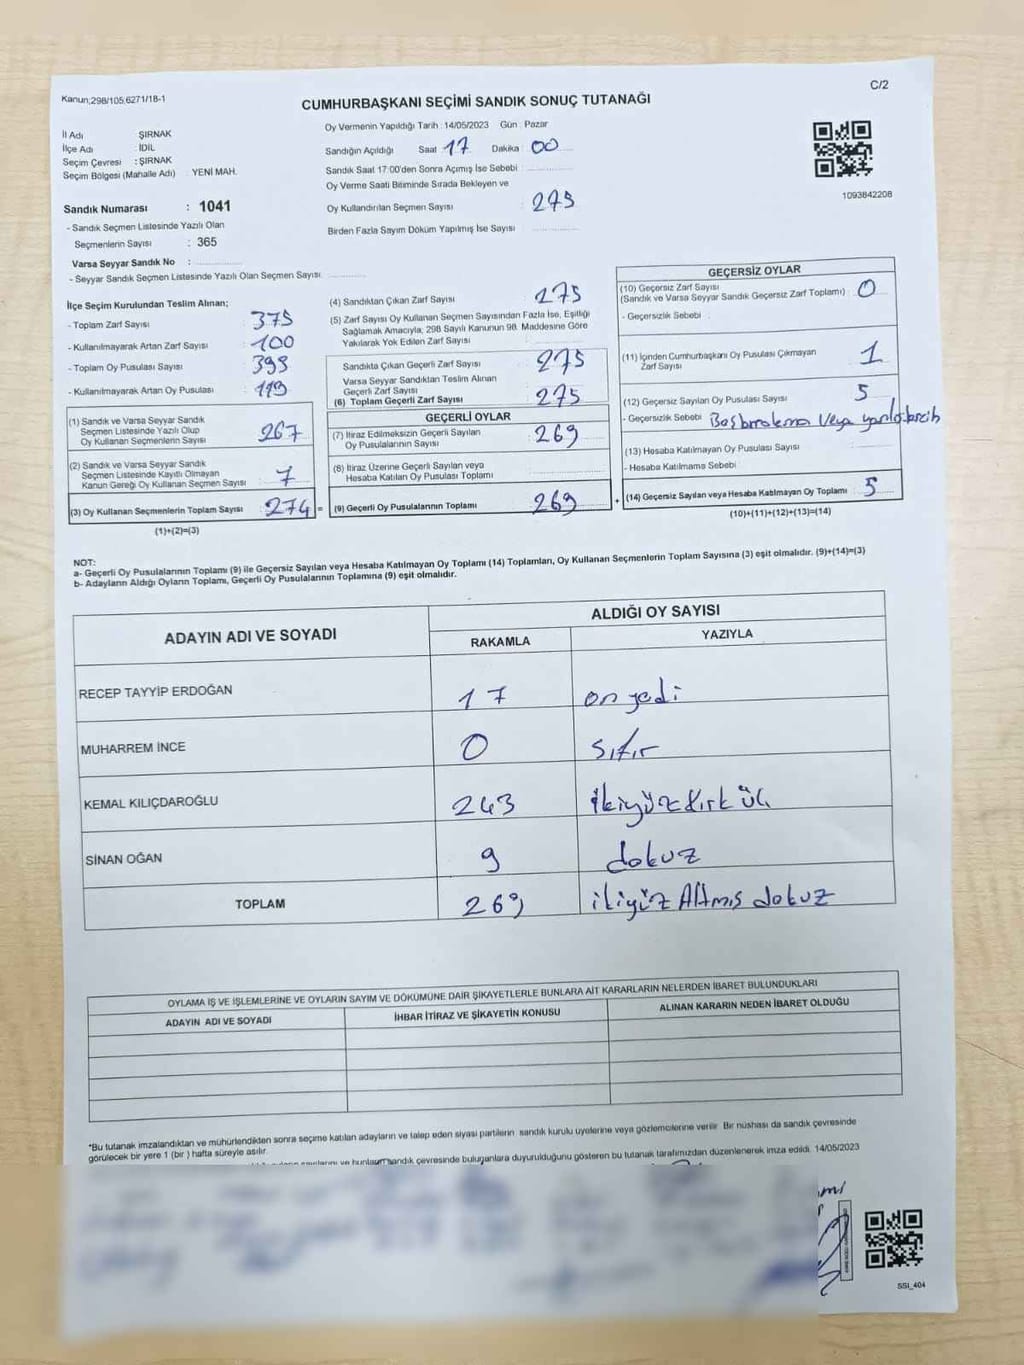 Kanun;298/105;6271/18-1
C/2
CUMHURBAŞKANI SEÇİMİ SANDIK SONUÇ TUTANAĞI
İl Adı ŞIRNAK
İlçe Adı : İDİL
Seçim Çevresi : ŞIRNAK
Seçim Bölgesi (Mahalle Adı) YENİ MAH.
Sandık Numarası : 1041
- Sandık Seçmen Listesinde Yazılı Olan
Seçmenlerin Sayısı : 365
Varsa Seyyar Sandık No :
- Seyyar Sandık Seçmen Listesinde Yazılı Olan Seçmen Sayısı
Oy Vermenin Yapıldığı Tarih : 14/05/2023 Gün : Pazar
Sandığın Açıldığı Saat 17 Dakika 00
Sandık Saat 17:00'den Sonra Açımış İse Sebebi :
Oy Verme Saati Bitiminde Sırada Bekleyen ve
Oy Kullandırılan Seçmen Sayısı : 275
Birden Fazla Sayım Döküm Yapılmış İse Sayısı
1093842208
İlçe Seçim Kurulundan Teslim Alınan;
- Toplam Zarf Sayısı 375
- Kullanılmayarak Artan Zarf Sayısı 100
- Toplam Oy Pusulası Sayısı 393
- Kullanılmayarak Artan Oy Pusulası 119
(1) Sandık ve Varsa Seyyar Sandık
Seçmen Listesinde Yazılı Olup
Oy Kullanan Seçmenlerin Sayısı 267
(2) Sandık ve Varsa Seyyar Sandık
Seçmen Listesinde Kayıtlı Olmayan
Kanun Gereği Oy Kullanan Seçmen Sayısı 7
(3) Oy Kullanan Seçmenlerin Toplam Sayısı 274 =
(1)+(2)=(3)
(4) Sandıktan Çıkan Zarf Sayısı 275
(5) Zarf Sayısı Oy Kullanan Seçmen Sayısından Fazla İse, Eşitliği
Sağlamak Amacıyla, 298 Sayılı Kanunun 98. Maddesine Göre
Yakılarak Yok Edilen Zarf Sayısı
Sandıkta Çıkan Geçerli Zarf Sayısı 275
Varsa Seyyar Sandıktan Teslim Alınan
Geçerli Zarf Sayısı
(6) Toplam Geçerli Zarf Sayısı 275
GEÇERLİ OYLAR
(7) İtiraz Edilmeksizin Geçerli Sayılan
Oy Pusulalarının Sayısı : 269
(8) İtiraz Üzerine Geçerli Sayılan veya
Hesaba Katılan Oy Pusulası Toplamı
(9) Geçerli Oy Pusulalarının Toplamı 269 +
GEÇERSİZ OYLAR
(10) Geçersiz Zarf Sayısı
(Sandık ve Varsa Seyyar Sandık Geçersiz Zarf Toplamı) : 0
- Geçersizlik Sebebi :
(11) İçinden Cumhurbaşkanı Oy Pusulası Çıkmayan
Zarf Sayısı 1
(12) Geçersiz Sayılan Oy Pusulası Sayısı 5
- Geçersizlik Sebebi veya
(13) Hesaba Katılmayan Oy Pusulası Sayısı
- Hesaba Katılmama Sebebi
(14) Geçersiz Sayılan veya Hesaba Katılmayan Oy Toplamı 5
(10)+(11)+(12)+(13)=(14)
NOT:
a- Geçerli Oy Pusulalarının Toplamı (9) ile Geçersiz Sayılan veya Hesaba Katılmayan Oy Toplamı (14) Toplamları, Oy Kullanan Seçmenlerin Toplam Sayısına (3) eşit olmalıdır. (9)+(14)=(3)
b- Adayların Aldığı Oyların Toplamı, Geçerli Oy Pusulalarının Toplamına (9) eşit olmalıdır.
ADAYIN ADI VE SOYADI
ALDIĞI OY SAYISI
RAKAMLA
YAZIYLA
RECEP TAYYİP ERDOĞAN 17 on yedi
MUHARREM İNCE 0 sıfır
KEMAL KILIÇDAROĞLU 243 ikiyüz kırk üç
SİNAN OĞAN 9 dokuz
TOPLAM 269 ikiyüz Altmış dokuz
OYLAMA İŞ VE İŞLEMLERİNE VE OYLARIN SAYIM VE DÖKÜMÜNE DAİR ŞİKAYETLERLE BUNLARA AİT KARARLARIN NELERDEN İBARET BULUNDUKLARI
ADAYIN ADI VE SOYADI
İHBAR İTİRAZ VE ŞİKAYETİN KONUSU
ALINAN KARARIN NEDEN İBARET OLDUĞU
*Bu tutanak imzalandıktan ve mühürlendikten sonra seçime katılan adayların ve talep eden siyasi partilerin sandık kurulu üyelerine veya gözlemcilerine verilir. Bir nüshası da sandık çevresinde
görülecek bir yere 1 (bir ) hafta süreyle asılır.
ve bunların sandık çevresinde bulunanlara duyurulduğunu gösteren bu tutanak tarafımızdan düzenlenerek imza edildi. 14/05/2023
SSI_404